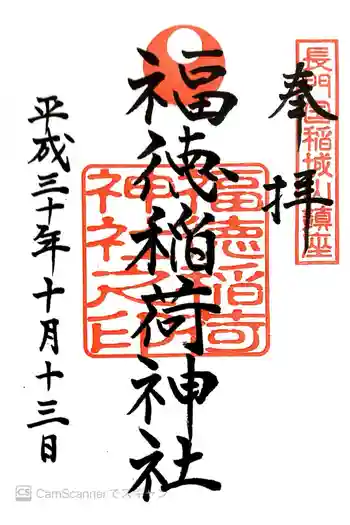 長門国稲城山鎮座
奉拝
福徳稲荷神社
福徳稲荷神社之印
平成三十年十月十三日
CS CamScannerでスキャン